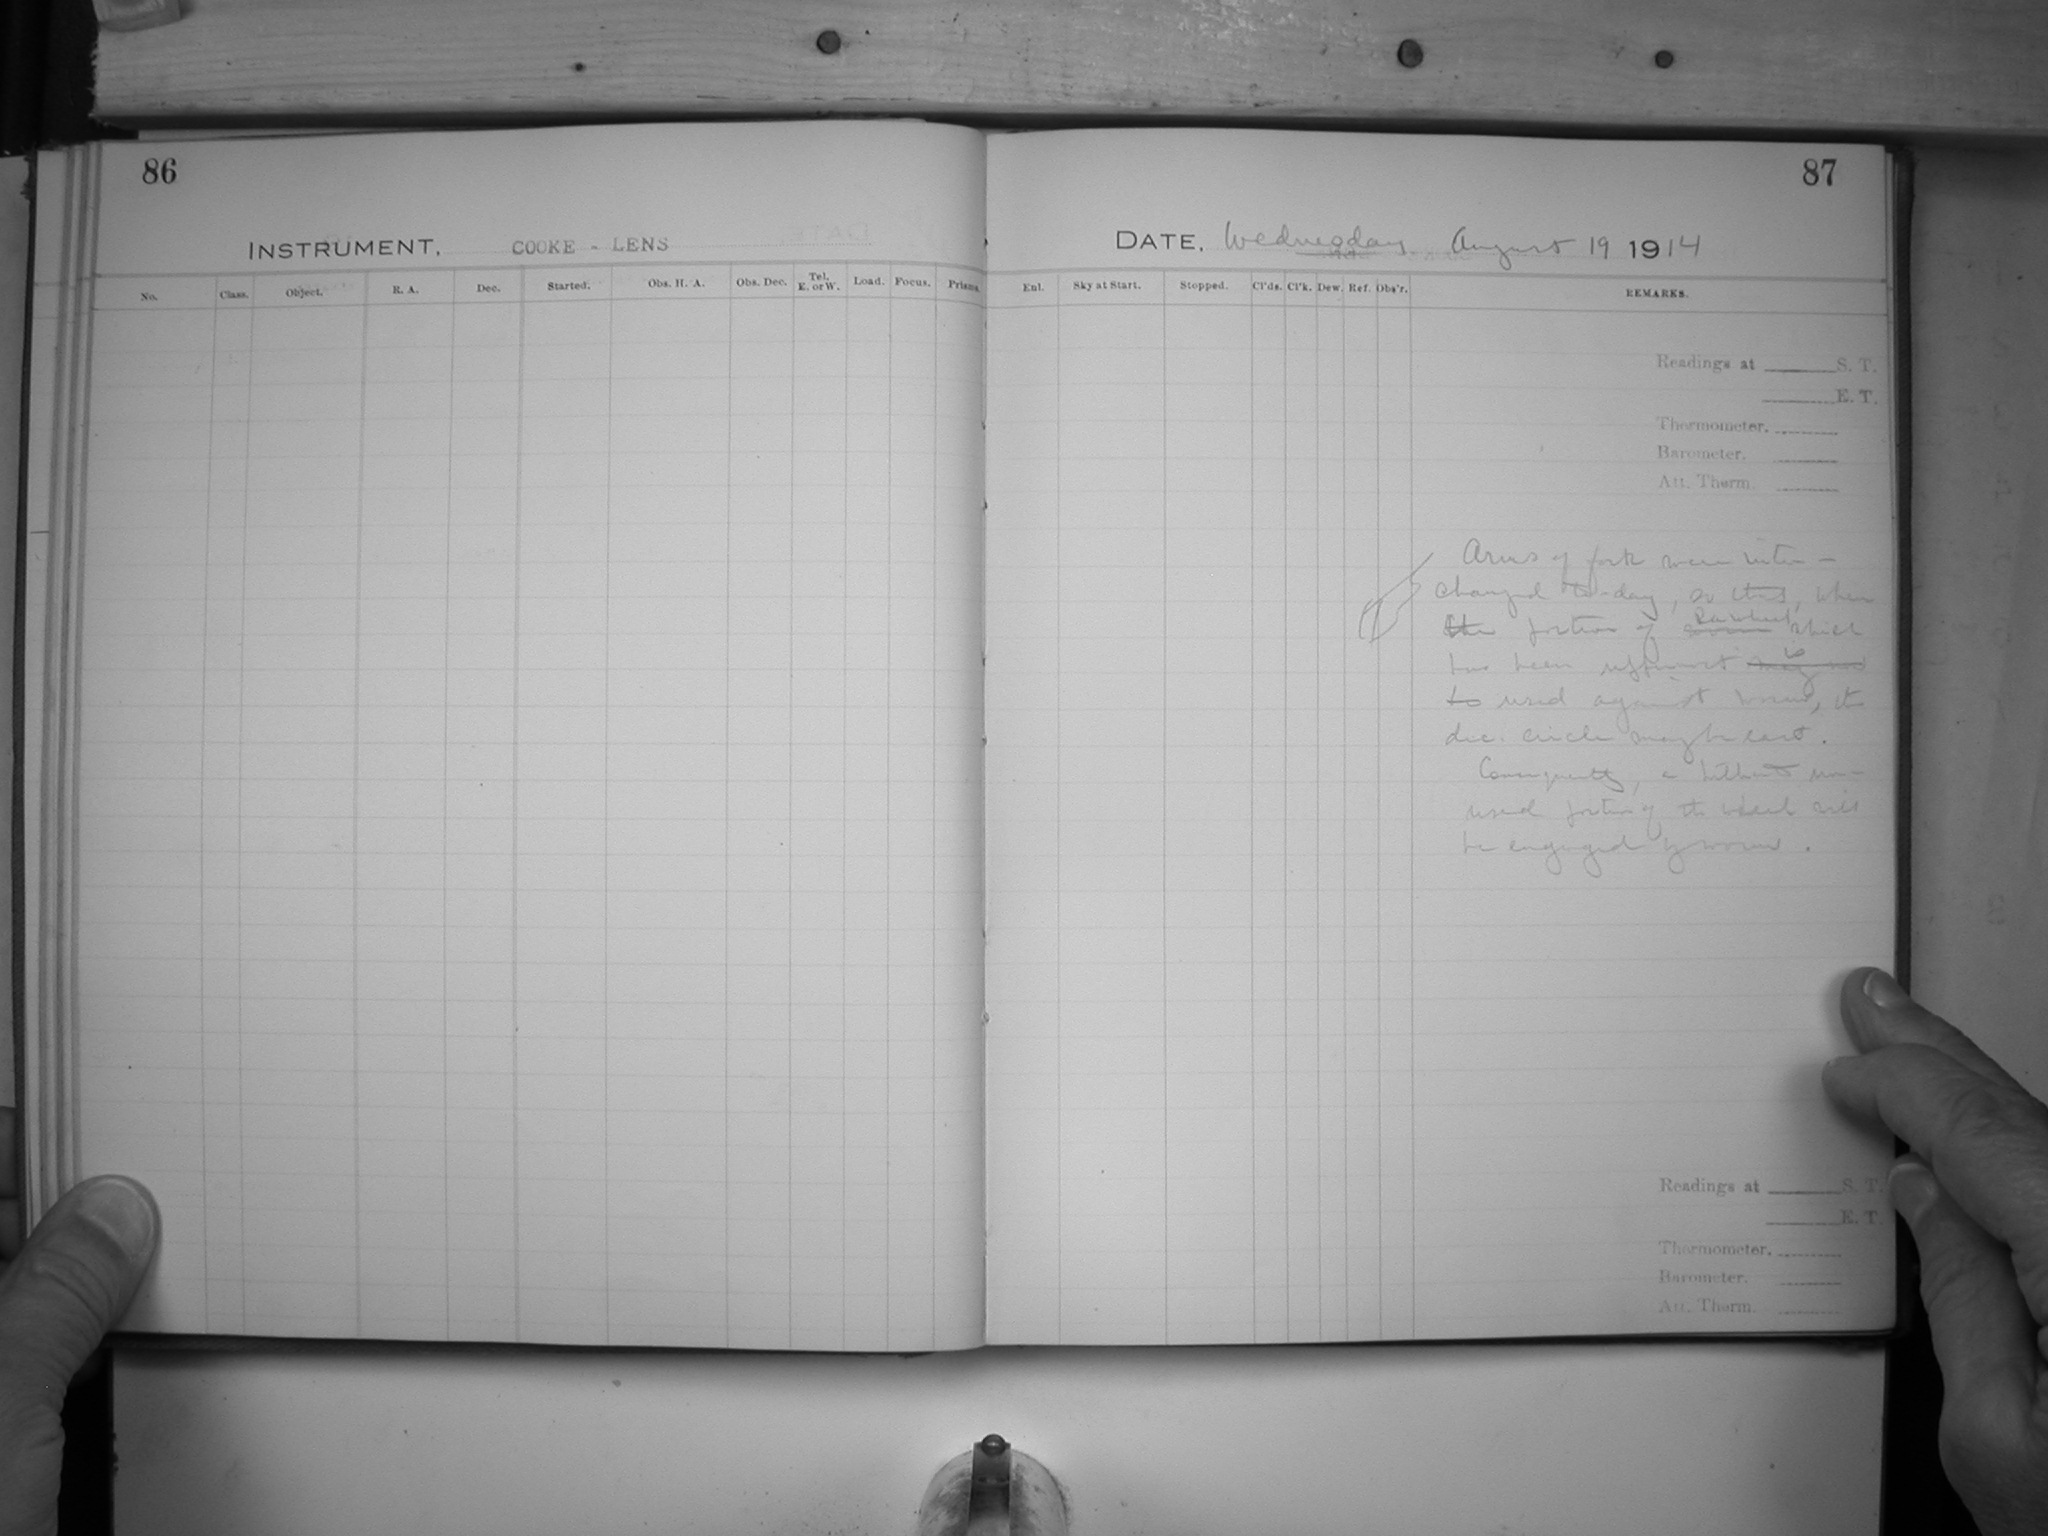 86
87
INSTRUMENT, COOKE - LENS
DATE, Wednesday August 19 1914
No. Class. Object. R. A. Dec. Started. Obs. H. A. Obs. Dec. Tel. E. or W. Load. Focus. Prisms.
Enl. Sky at Start. Stopped. Cl'ds. Cl'k. Dew. Ref. Obs'r. REMARKS.
Readings at S. T.
E. T.
Thermometer.
Barometer.
Att. Therm.
Arms of fork were inter-
changed to-day, so that, when
the portion of which
has been is
to used against worm, the
dec. circle may be east.
Consequently, a hitherto un-
used portion of the wheel will
be engaged by worm.
Readings at S. T.
E. T.
Thermometer.
Barometer.
Att. Therm.